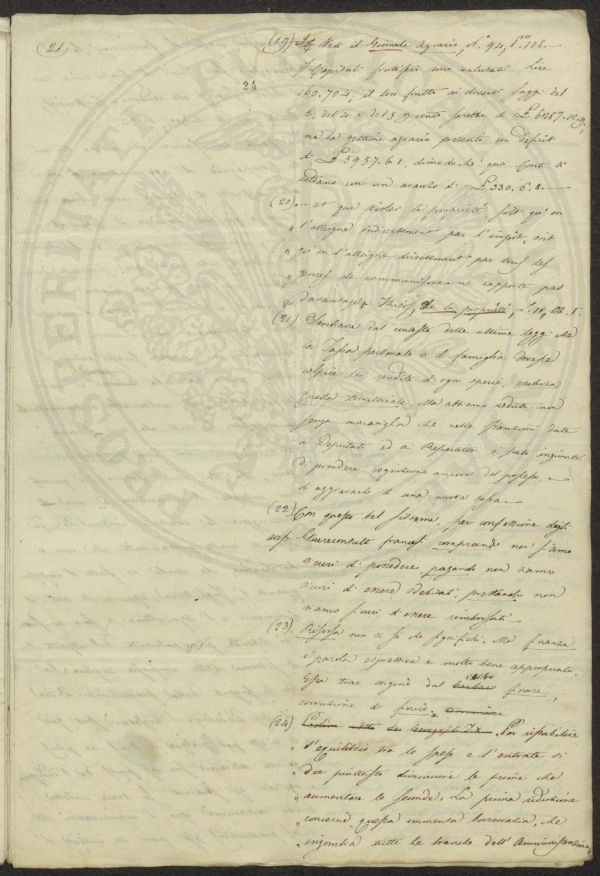 (21)
24
(19) Ved. il Giornale Agrario, N.° 94, p. 108.
I Capitali fruttiferi sono valutati Lire
160,704, il loro frutto ai diversi saggi del
3, del 4 e del 5 p cento sarebbe di £ 6287.
ma la gestione agraria presenta un deficit
di £ 5957. 6 1, dimodochè quei Conti si
saldano con un avanzo di £ 330. 6. 8.
(20) ... et que violer la propriété, soit qu'on
" l'atteigne indirectement par l'impôt, soit
" qu'on l'atteigne directement par
" de communisme ne rapporte pas
" davantage. Thiers, De la propriété, L. IV, Ch. 1.
(21) Sembrava dal contesto delle ultime leggi che
la Tassa personale o di famiglia dovesse
colpire le rendite di ogni specie, esclusa
quella territoriale. Ma abbiamo veduto non
senza maraviglia che nelle istruzioni date
ai Deputati ed ai Repartitori è stato ingiunto
di prendere cognizione ancora del possesso, e
di aggravarlo di una nuova tassa.
(22) Con questo bel sistema, per confessione degli
stessi Giureconsulti francesi comprando non siamo
sicuri di possedere, pagando non siamo
sicuri di essere liberati, prestando non
siamo sicuri di essere rimborsati.
(23) Risorsa non si sa che significhi. Ma finanza
è parola espressiva e molto bene appropriata.
Essa trae origine dal finare,
corruzione di finire.
(24) Per ristabilire
" l'equilibrio tra le spese e l'entrate si
" dee piuttosto diminuire le prime che
" aumentare le seconde. La prima riduzione
" concerne questa immensa burocrazia, che
" ingombra tutte le branche dell'Amministrazione,